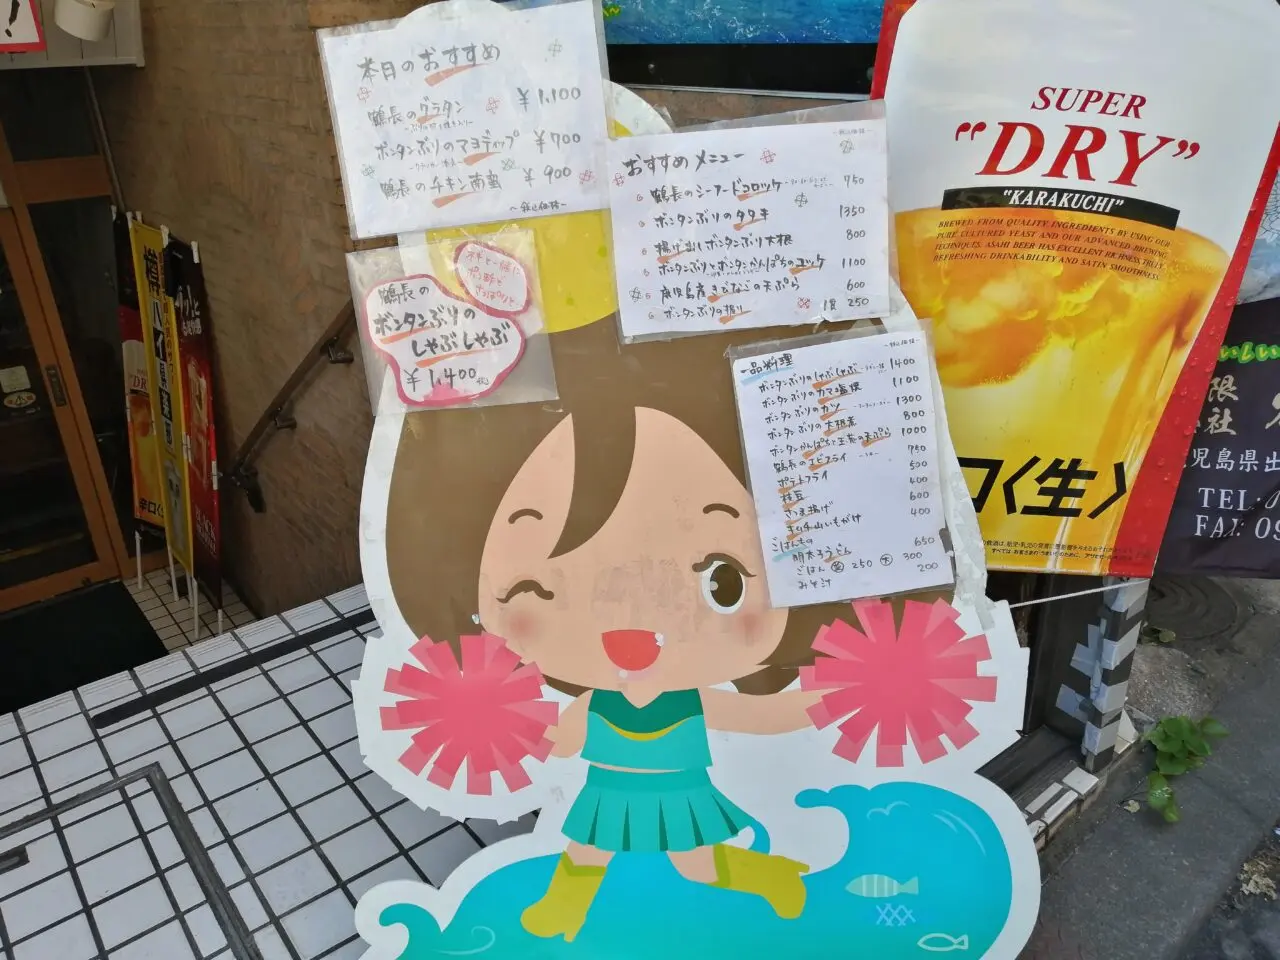 本月のおすすめ
鶴長のグラタン ¥1,100
ボンタンぶりのマヨディップ ¥700
鶴長のチキン南蛮 ¥900
～税込価格～
鶴長の
ボンタンぶりの
しゃぶしゃぶ
¥1,400
～税込価格～
おすすめメニュー
鶴長のシーフードコロッケ 750
ボンタンぶりのタタキ 1350
揚げ出しボンタンぶり大根 800
ボンタンぶりとボンタンかんぱちのユッケ 1100
鹿児島産きびなごの天ぷら 600
ボンタンぶりの握り 1貫 250
～税込価格～
一品料理
ボンタンぶりのしゃぶしゃぶ 1400
ボンタンぶりのカマ塩焼 1100
ボンタンぶりのカツ 1300
ボンタンぶりの大根煮 800
ボンタンかんぱちと玉葱の天ぷら 1000
鶴長のエビフライ 750
ポテトフライ 500
枝豆 400
さつま揚げ 600
キムチ山いもがけ 400
ごはんもの
明太子うどん 650
ごはん 250 大 300
みそ汁 200
SUPER
"DRY"
"KARAKUCHI"
BREWED FROM QUALITY INGREDIENTS BY USING OUR
PURE CULTURED YEAST AND OUR ADVANCED BREWING
TECHNIQUES. ASAHI BEER HAS EXCELLENT RICHNESS, TRULY
REFRESHING DRINKABILITY AND SATIN SMOOTHNESS.
口〈生〉
限
社
児島県出
TEL:
FAX: 09
辛口〈生〉